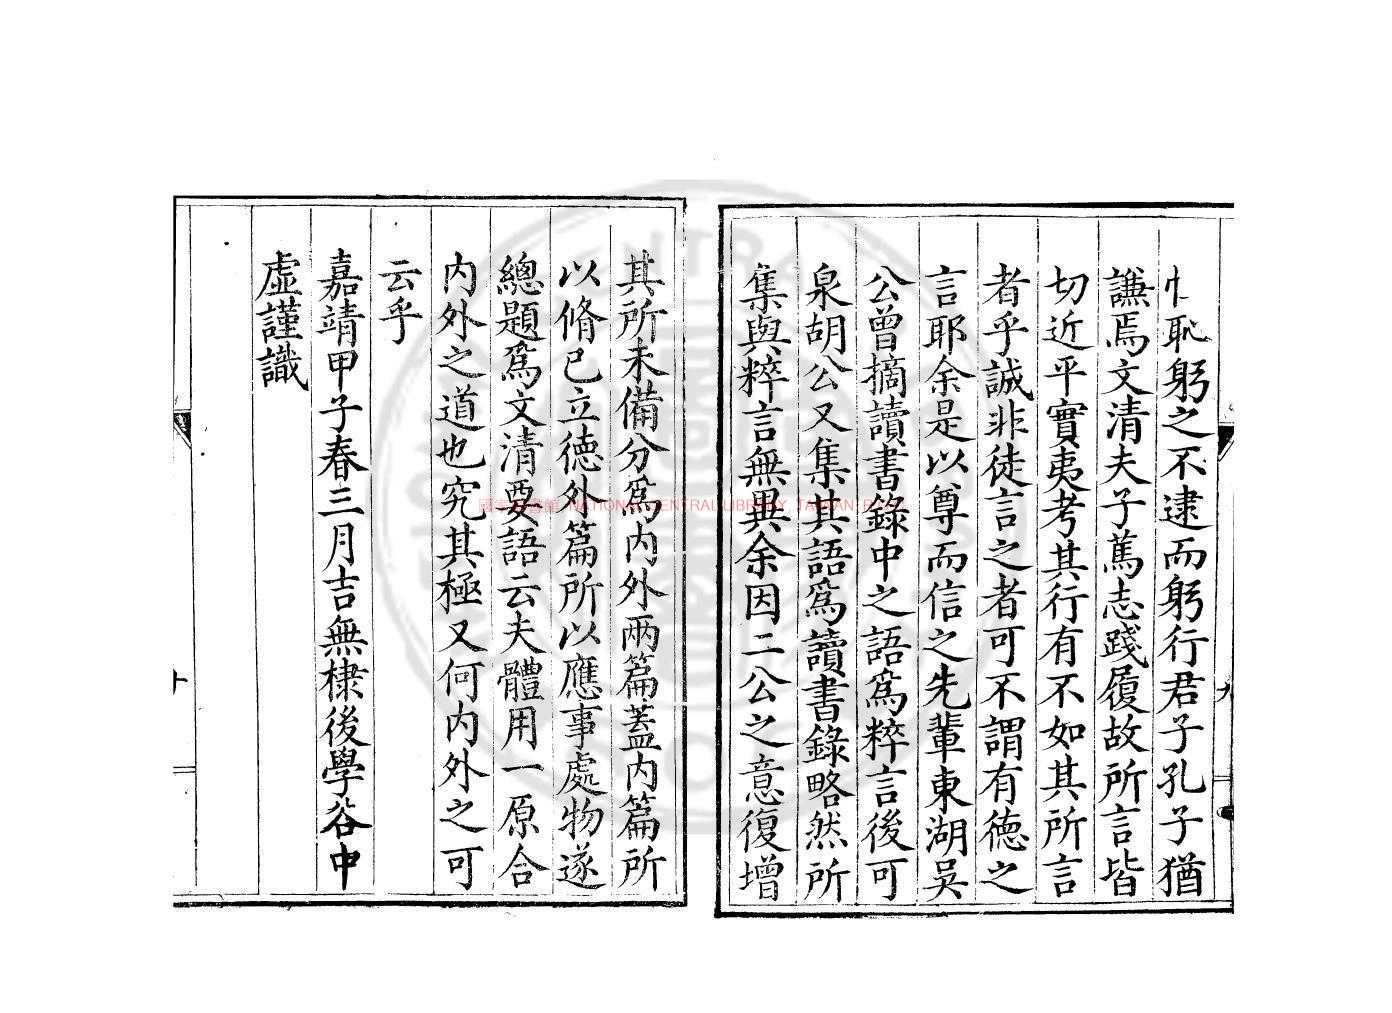 恥躬之不逮而躬行君子孔子猶
謙焉文清夫子篤志踐履故所言皆
切近平實夷考其行有不如其所言
者乎誠非徒言之者可不謂有德之
言耶余是以尊而信之先輩東湖吳
公曾摘讀書錄中之語爲粹言後可
泉胡公又集其語爲讀書錄略然所
集與粹言無異余因二公之意復增
九
其所未備分爲内外兩篇蓋内篇所
以脩已立德外篇所以應事處物遂
總題爲文清要語云夫體用一原合
内外之道也究其極又何内外之可
云乎
嘉靖甲子春三月吉無棣後學谷中
虚謹識
十
國家圖書館 NATIONAL CENTRAL LIBRARY, TAIWAN, R.O.C.